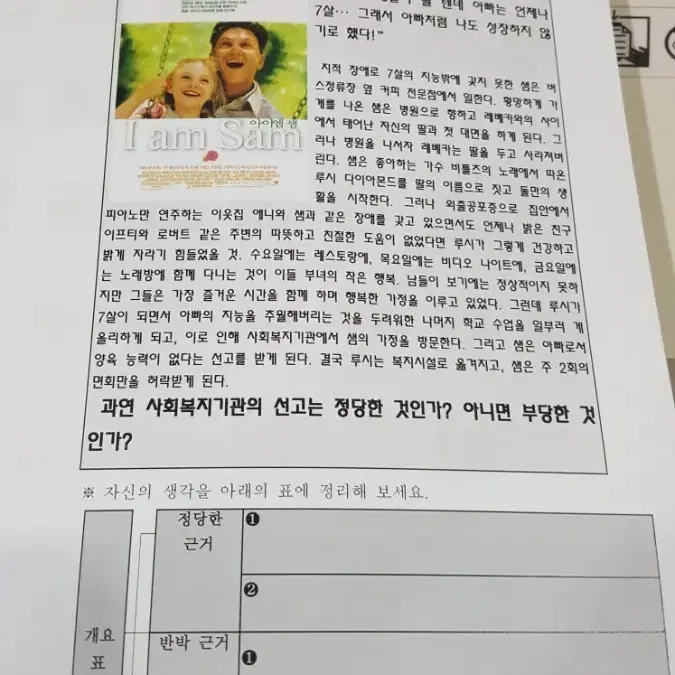 텐데 아빠는 언제나
7살… 그래서 아빠처럼 나도 성장하지 않
기로 했다!"
아이엠 샘
I am Sam
지적 장애로 7살의 지능밖에 갖지 못한 샘은 버
스정류장 옆 커피 전문점에서 일한다. 황망하게 가
게를 나온 샘은 병원으로 향하고 레베카와의 사이
에서 태어난 자신의 딸과 첫 대면을 하게 된다. 그
러나 병원을 나서자 레베카는 딸을 두고 사라져버
린다. 샘은 좋아하는 가수 비틀즈의 노래에서 따온
루시 다이아몬드를 딸의 이름으로 짓고 둘만의 생
활을 시작한다. 그러나 외출공포증으로 집안에서
피아노만 연주하는 이웃집 애니와 샘과 같은 장애를 갖고 있으면서도 언제나 밝은 친구
이프티와 로버트 같은 주변의 따뜻하고 친절한 도움이 없었다면 루시가 그렇게 건강하고
밝게 자라기 힘들었을 것. 수요일에는 레스토랑에, 목요일에는 비디오 나이트에, 금요일에
는 노래방에 함께 다니는 것이 이들 부녀의 작은 행복. 남들이 보기에는 정상적이지 못하
지만 그들은 가장 즐거운 시간을 함께 하며 행복한 가정을 이루고 있었다. 그런데 루시가
7살이 되면서 아빠의 지능을 추월해버리는 것을 두려워한 나머지 학교 수업을 일부러 게
을리하게 되고, 이로 인해 사회복지기관에서 샘의 가정을 방문한다. 그리고 샘은 아빠로서
양육 능력이 없다는 선고를 받게 된다. 결국 루시는 복지시설로 옮겨지고, 샘은 주 2회의
면회만을 허락받게 된다.
과연 사회복지기관의 선고는 정당한 것인가? 아니면 부당한 것
인가?
※ 자신의 생각을 아래의 표에 정리해 보세요.
정당한
근거
❶
❷
개요
표
반박 근거
❶